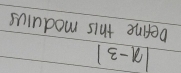 |x-3|
Define this modulus